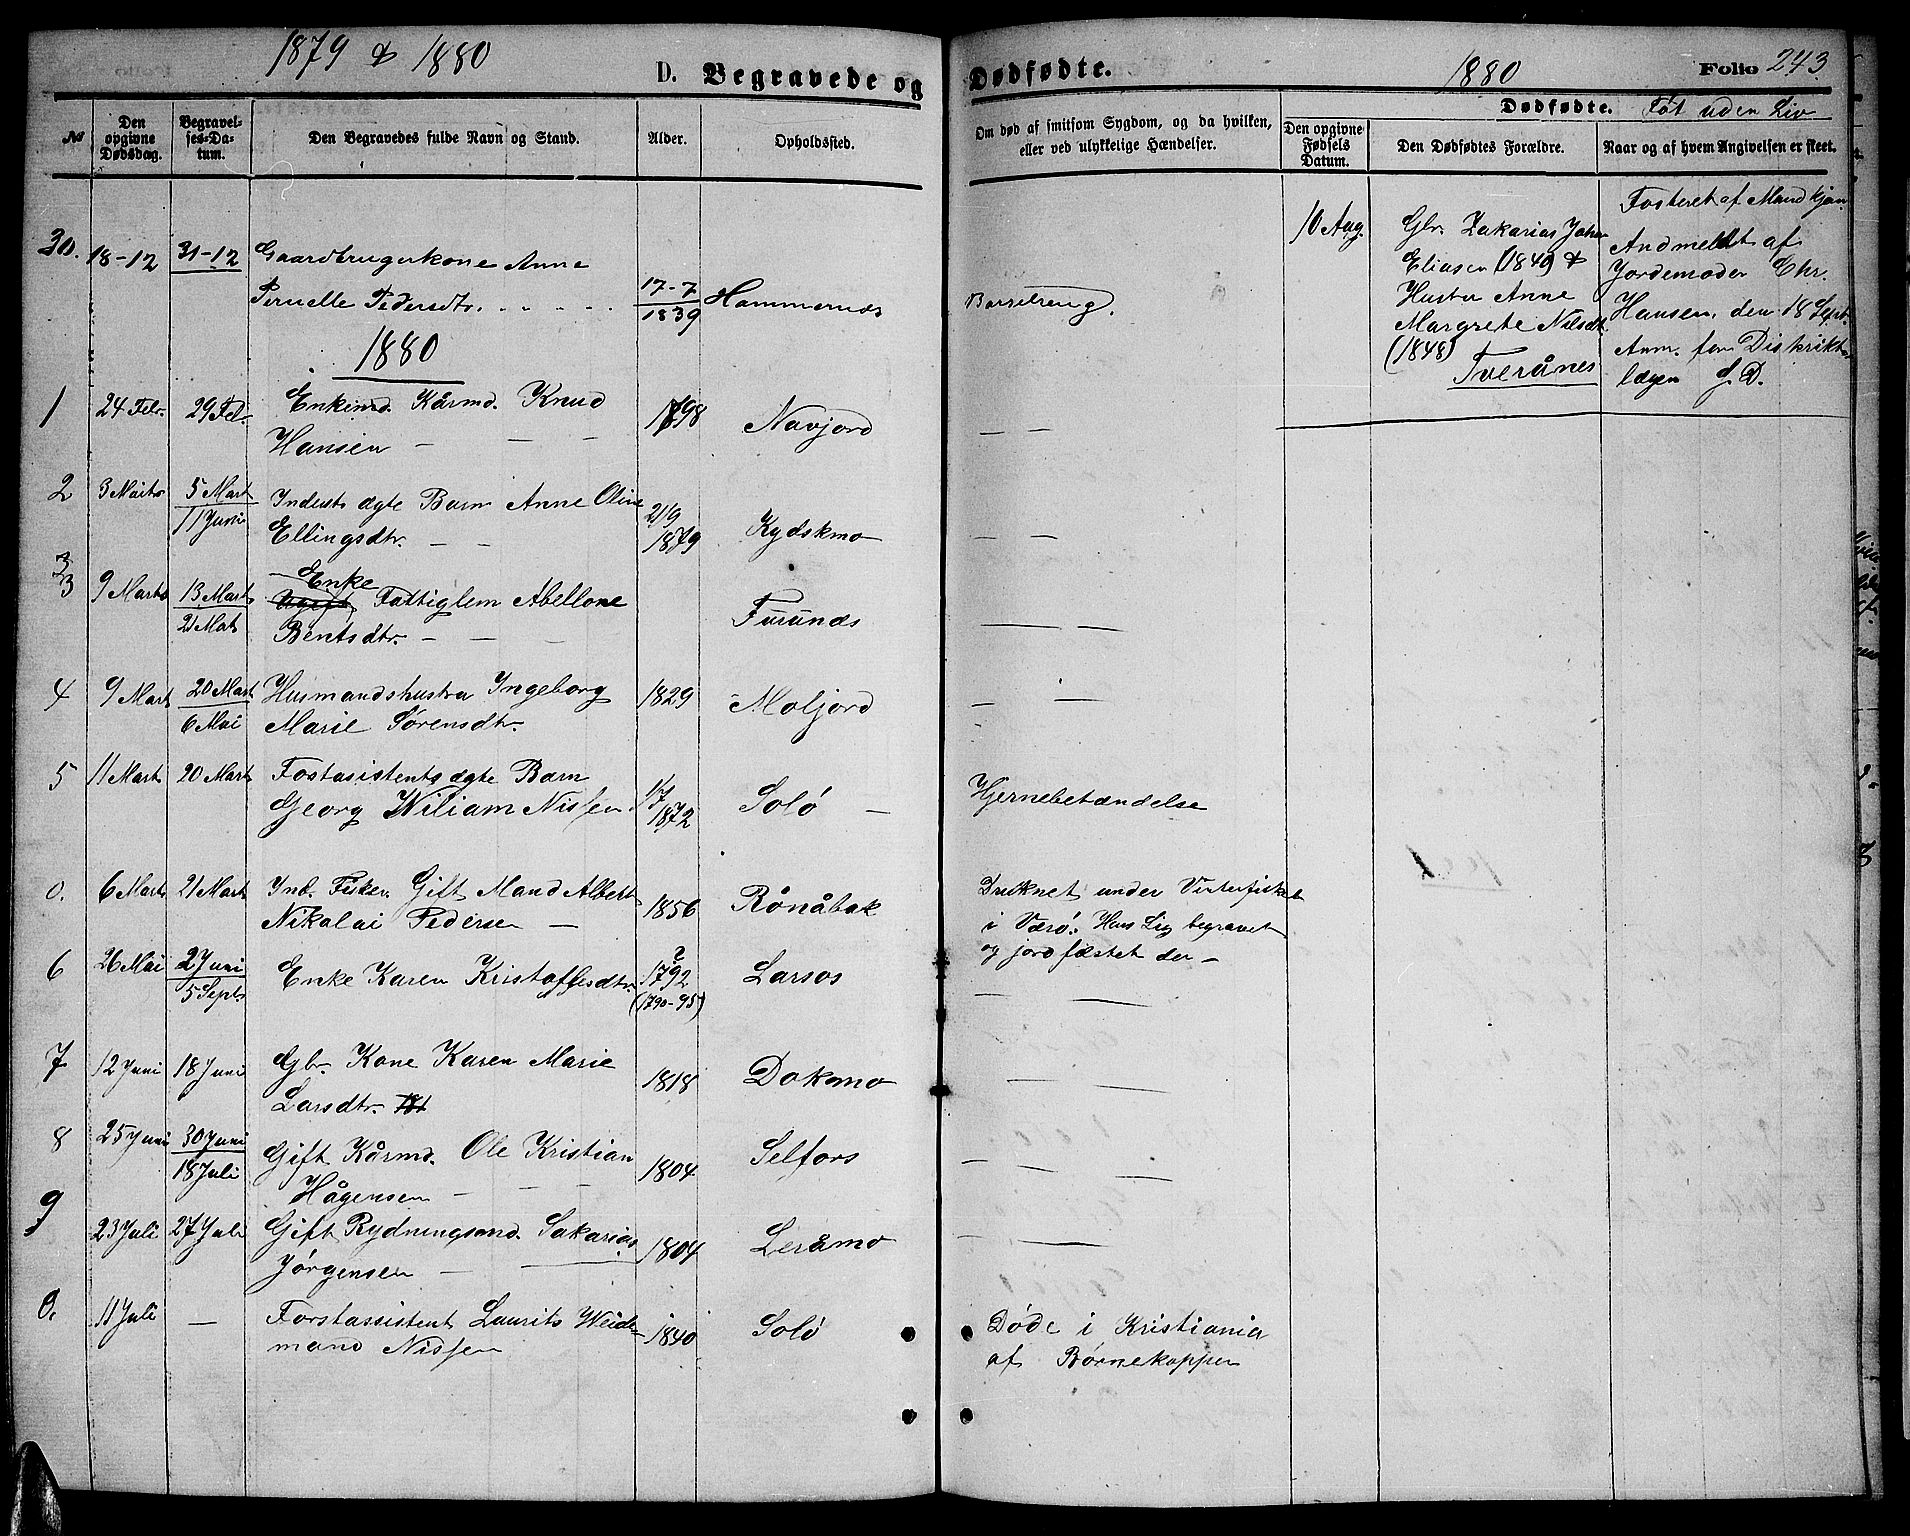 1879 & 1880
D. Begravede og
№
Den opgivne Dødsdag.
Begravelses-Datum.
Den Begravedes fulde Navn og Stand.
Alder.
Opholdssted.
30. 18-12 31-12 Gaardbrugerkone Anne
Pernelle Pedersdtr. 17-7 1839 Hammernæs
1880
1 24 Febr. 29 Feb. Enkemd. Kårmd. Knud
Hansen — — — 1798 Navjord
2 3 Marts 5 Mart 11 Juni Inderst ægte Barn Anne Oline
Ellingsdtr. — — 21/9 1879 Kydskmo
3 9 Marts 13 Mart 21 Mart Enke
Ugift Fattiglem Abellone
Bentsdtr. — — — Furunæs
4 9 Mart 20 Mart 6 Mai Husmandshustru Ingeborg
Marie Sørensdtr. 1829 Moljord
5 11 Mart 20 Mart Fostasistents ægte Barn
Georg Wiliam Nissen. 1872 Solö —
0. 6 Mart 21 Mart Ind. Fisker. Gift Mand Albert
Nikolai Pedersen — 1856 Rönåbak
6 26 Mai 2 Juni 5 Septr Enke Karen Kristoffesdtr. ? 1792 (1790-95) Larsos
7 12 Juni 18 Juni Gbr. Kone Karen Marie
Larsdtr. 1818 Dokmo
8 25 Juni 30 Juni 18 Juli Gift Kårmd. Ole Kristian
Hågensen — — — 1804 Selfors
9 23 Juli 27 Juli Gift Rydningsmd. Sakarias
Jörgensen — — 1804 Leråmo
0. 11 Juli — Forstassistent Laurits Weide-
mand Nissen 1840 Solö
Dødfødte.
1880
Folio 243
Om død af smitsom Sygdom, og da hvilken,
eller ved ulykkelige Hændelser.
Dødfødte. Føt uden Liv
Den opgivne Fødsels Datum.
Den Dødfødtes Forældre.
Naar og af hvem Angivelsen er skeet.
Barselseng.
— —
— —
— — —
— —
Hjernebetændelse
Druknet under Vinterfisket
i Værö. Hans Lig begravet
og jordfæstet der —
— —
— —
— —
— —
Döde i Kristiania
af Børnekopper
10 Aug.
Gbr. Zakarias Johan
Eliasen (1840) &
Hustru Anne
Margrete Nilsdt.
(1848)
Tverånes
Fosteret af Mandkjøn
Andmeldt af
Jordemoder Chr.
Hansen, den 18 Sept.
Anm. for Distrikts
lægen J. D.